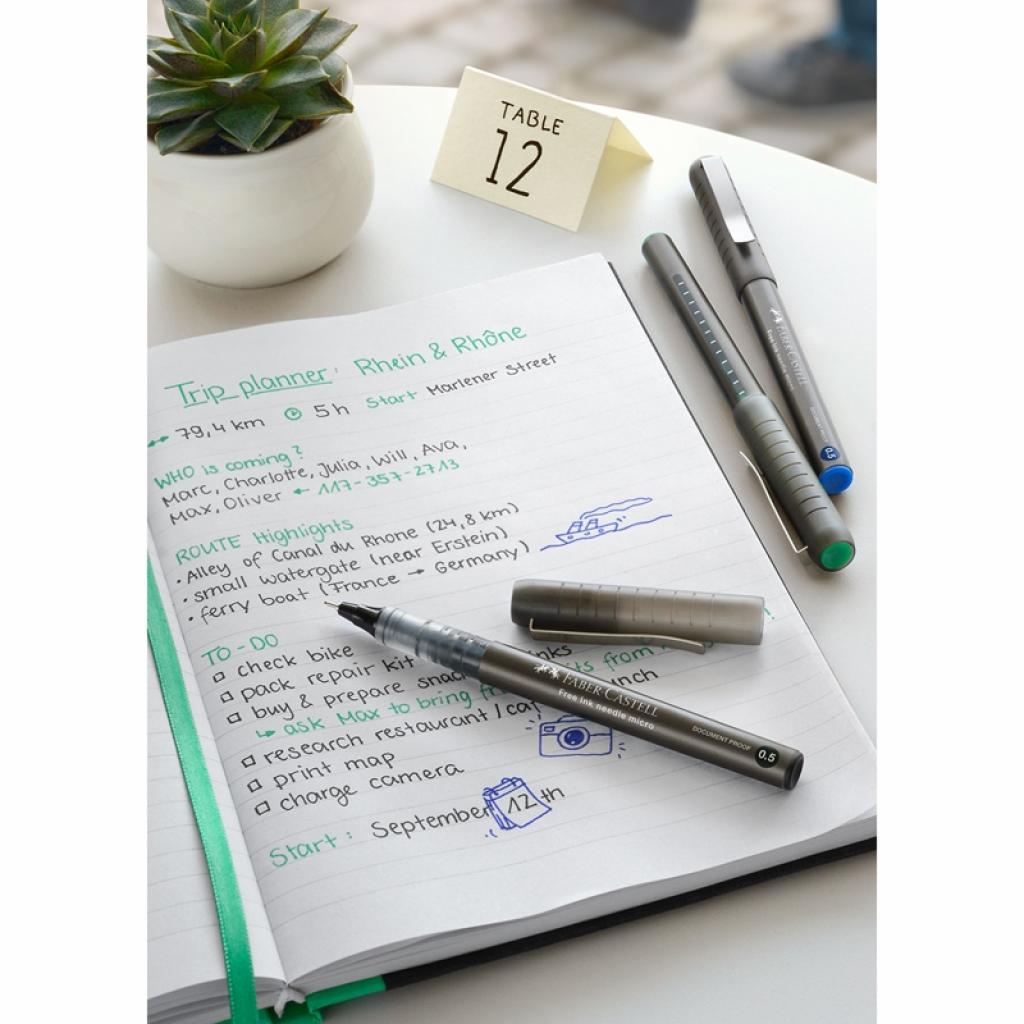 TABLE
12
Trip planner: Rhein & Rhône
79,4 km 5h Start Marlener Street
WHO is coming?
Marc, Charlotte, Julia, Will, Ava,
Max, Oliver ← 117-357-2713
ROUTE Highlights
• Alley of Canal du Rhone (24,8 km)
• small watergate (near Erstein)
• ferry boat (France → Germany)
TO-DO
check bike
pack repair kit
buy & prepare
ask Max to bring from !
research restaurant /
print map
charge camera
Start: September 12 th
FABER-CASTELL
Free ink needle micro
DOCUMENT PROOF
0.5
FABER-CASTELL
Free ink needle micro
DOCUMENT PROOF
0.5